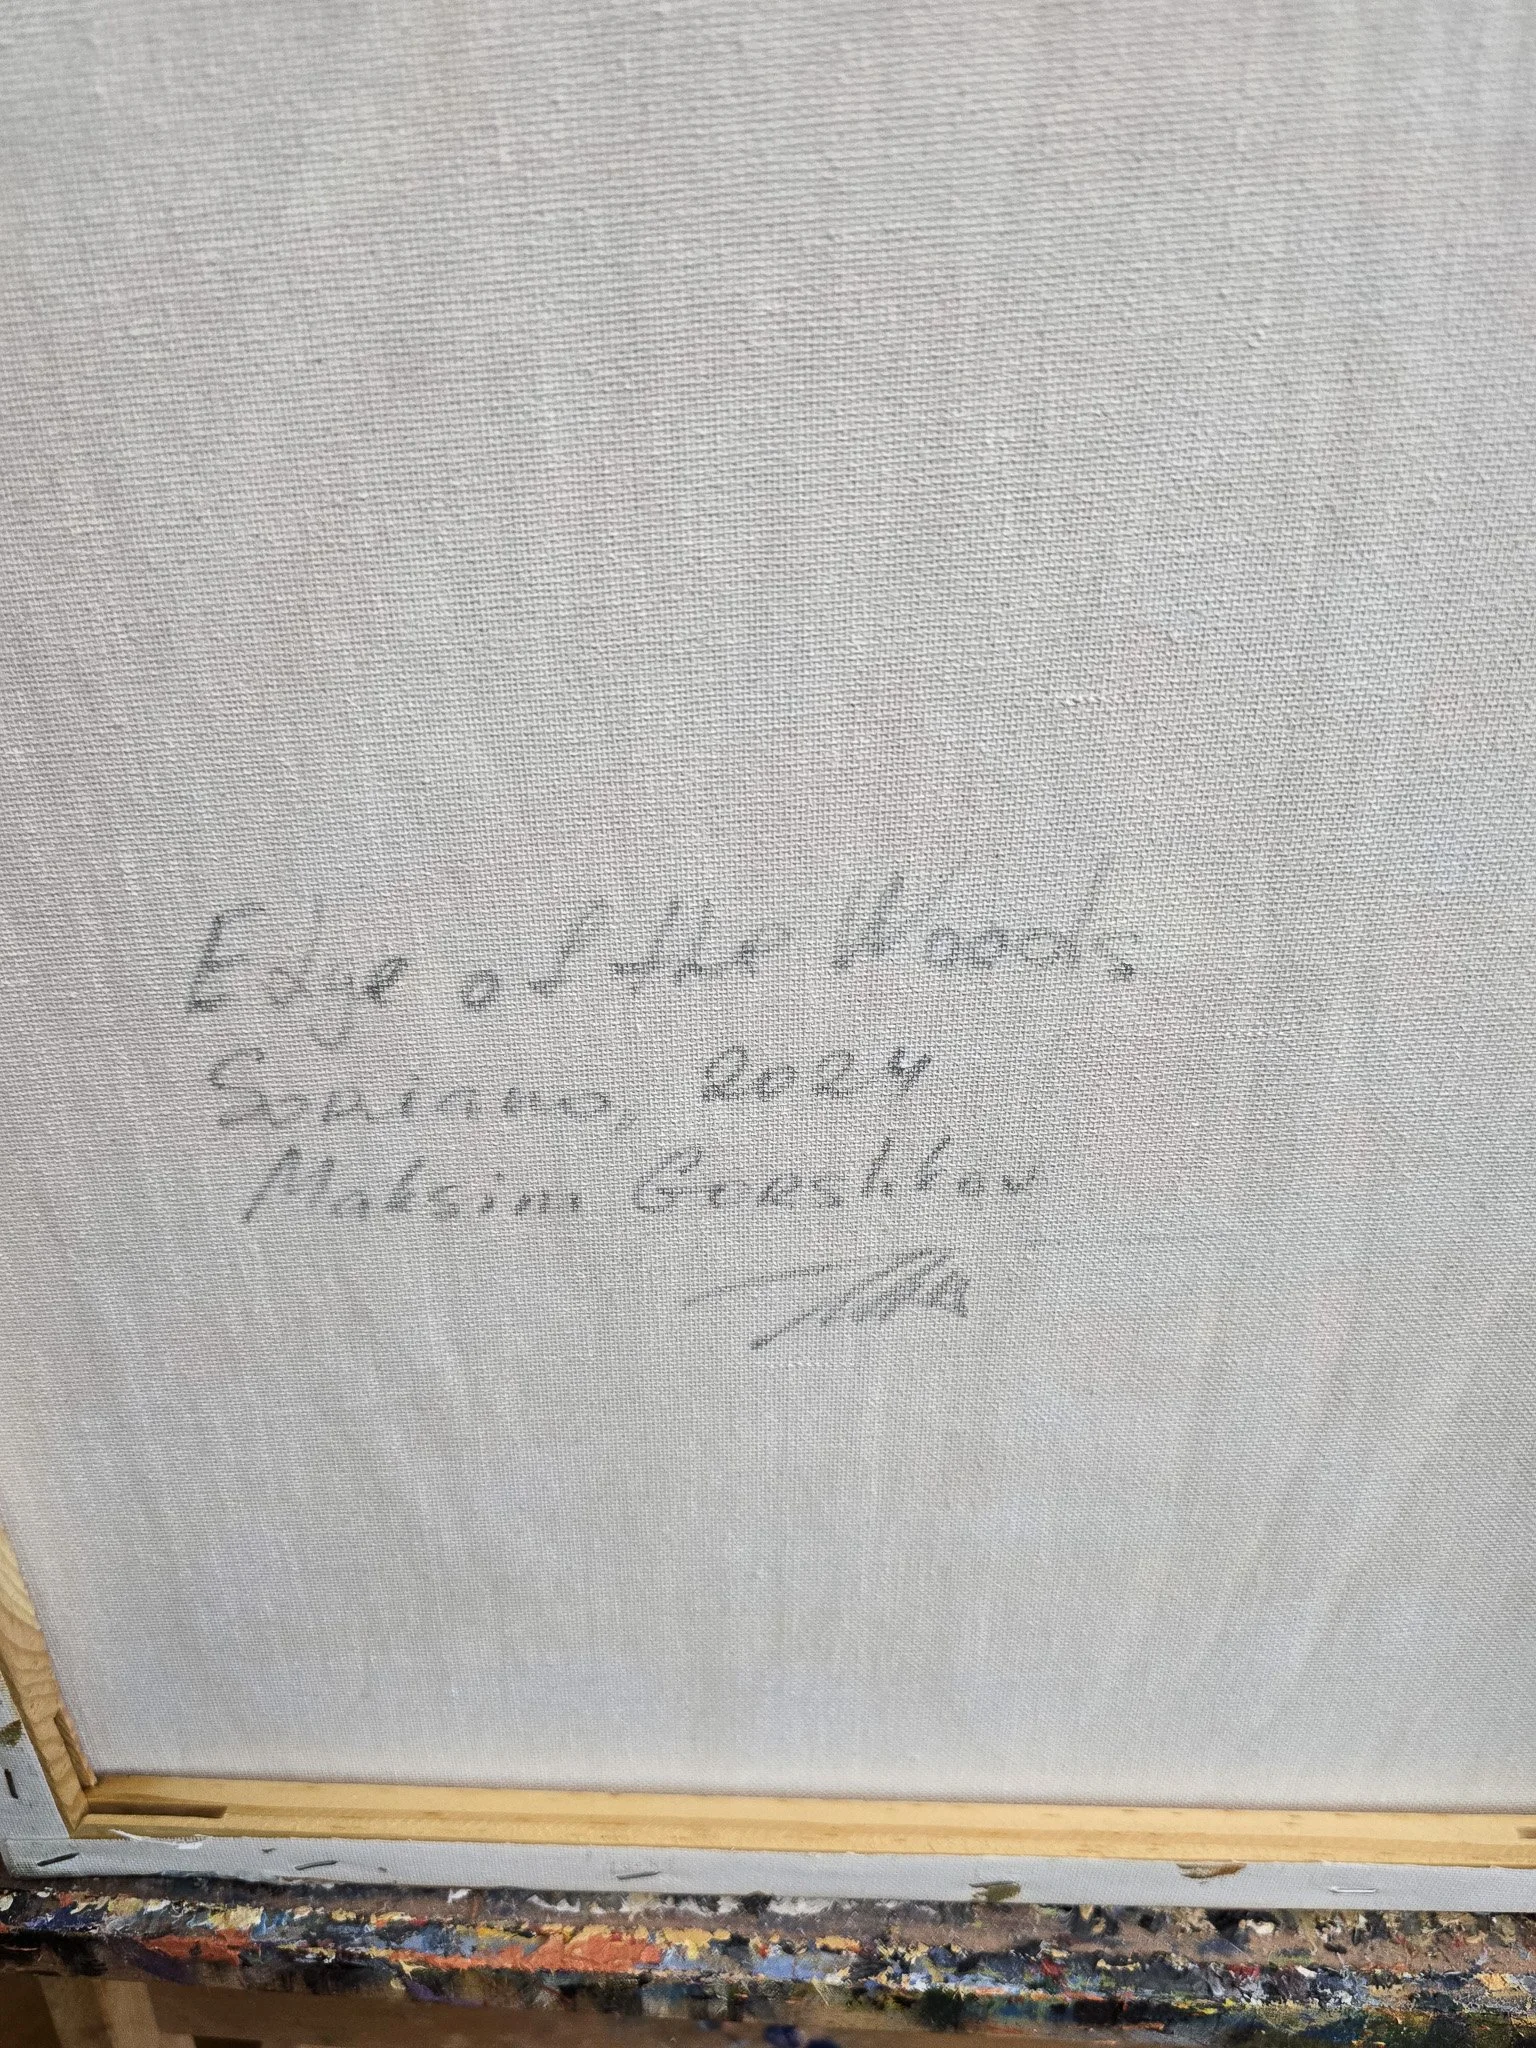 Edge of the Woods
2024
Maksim Goeshkov